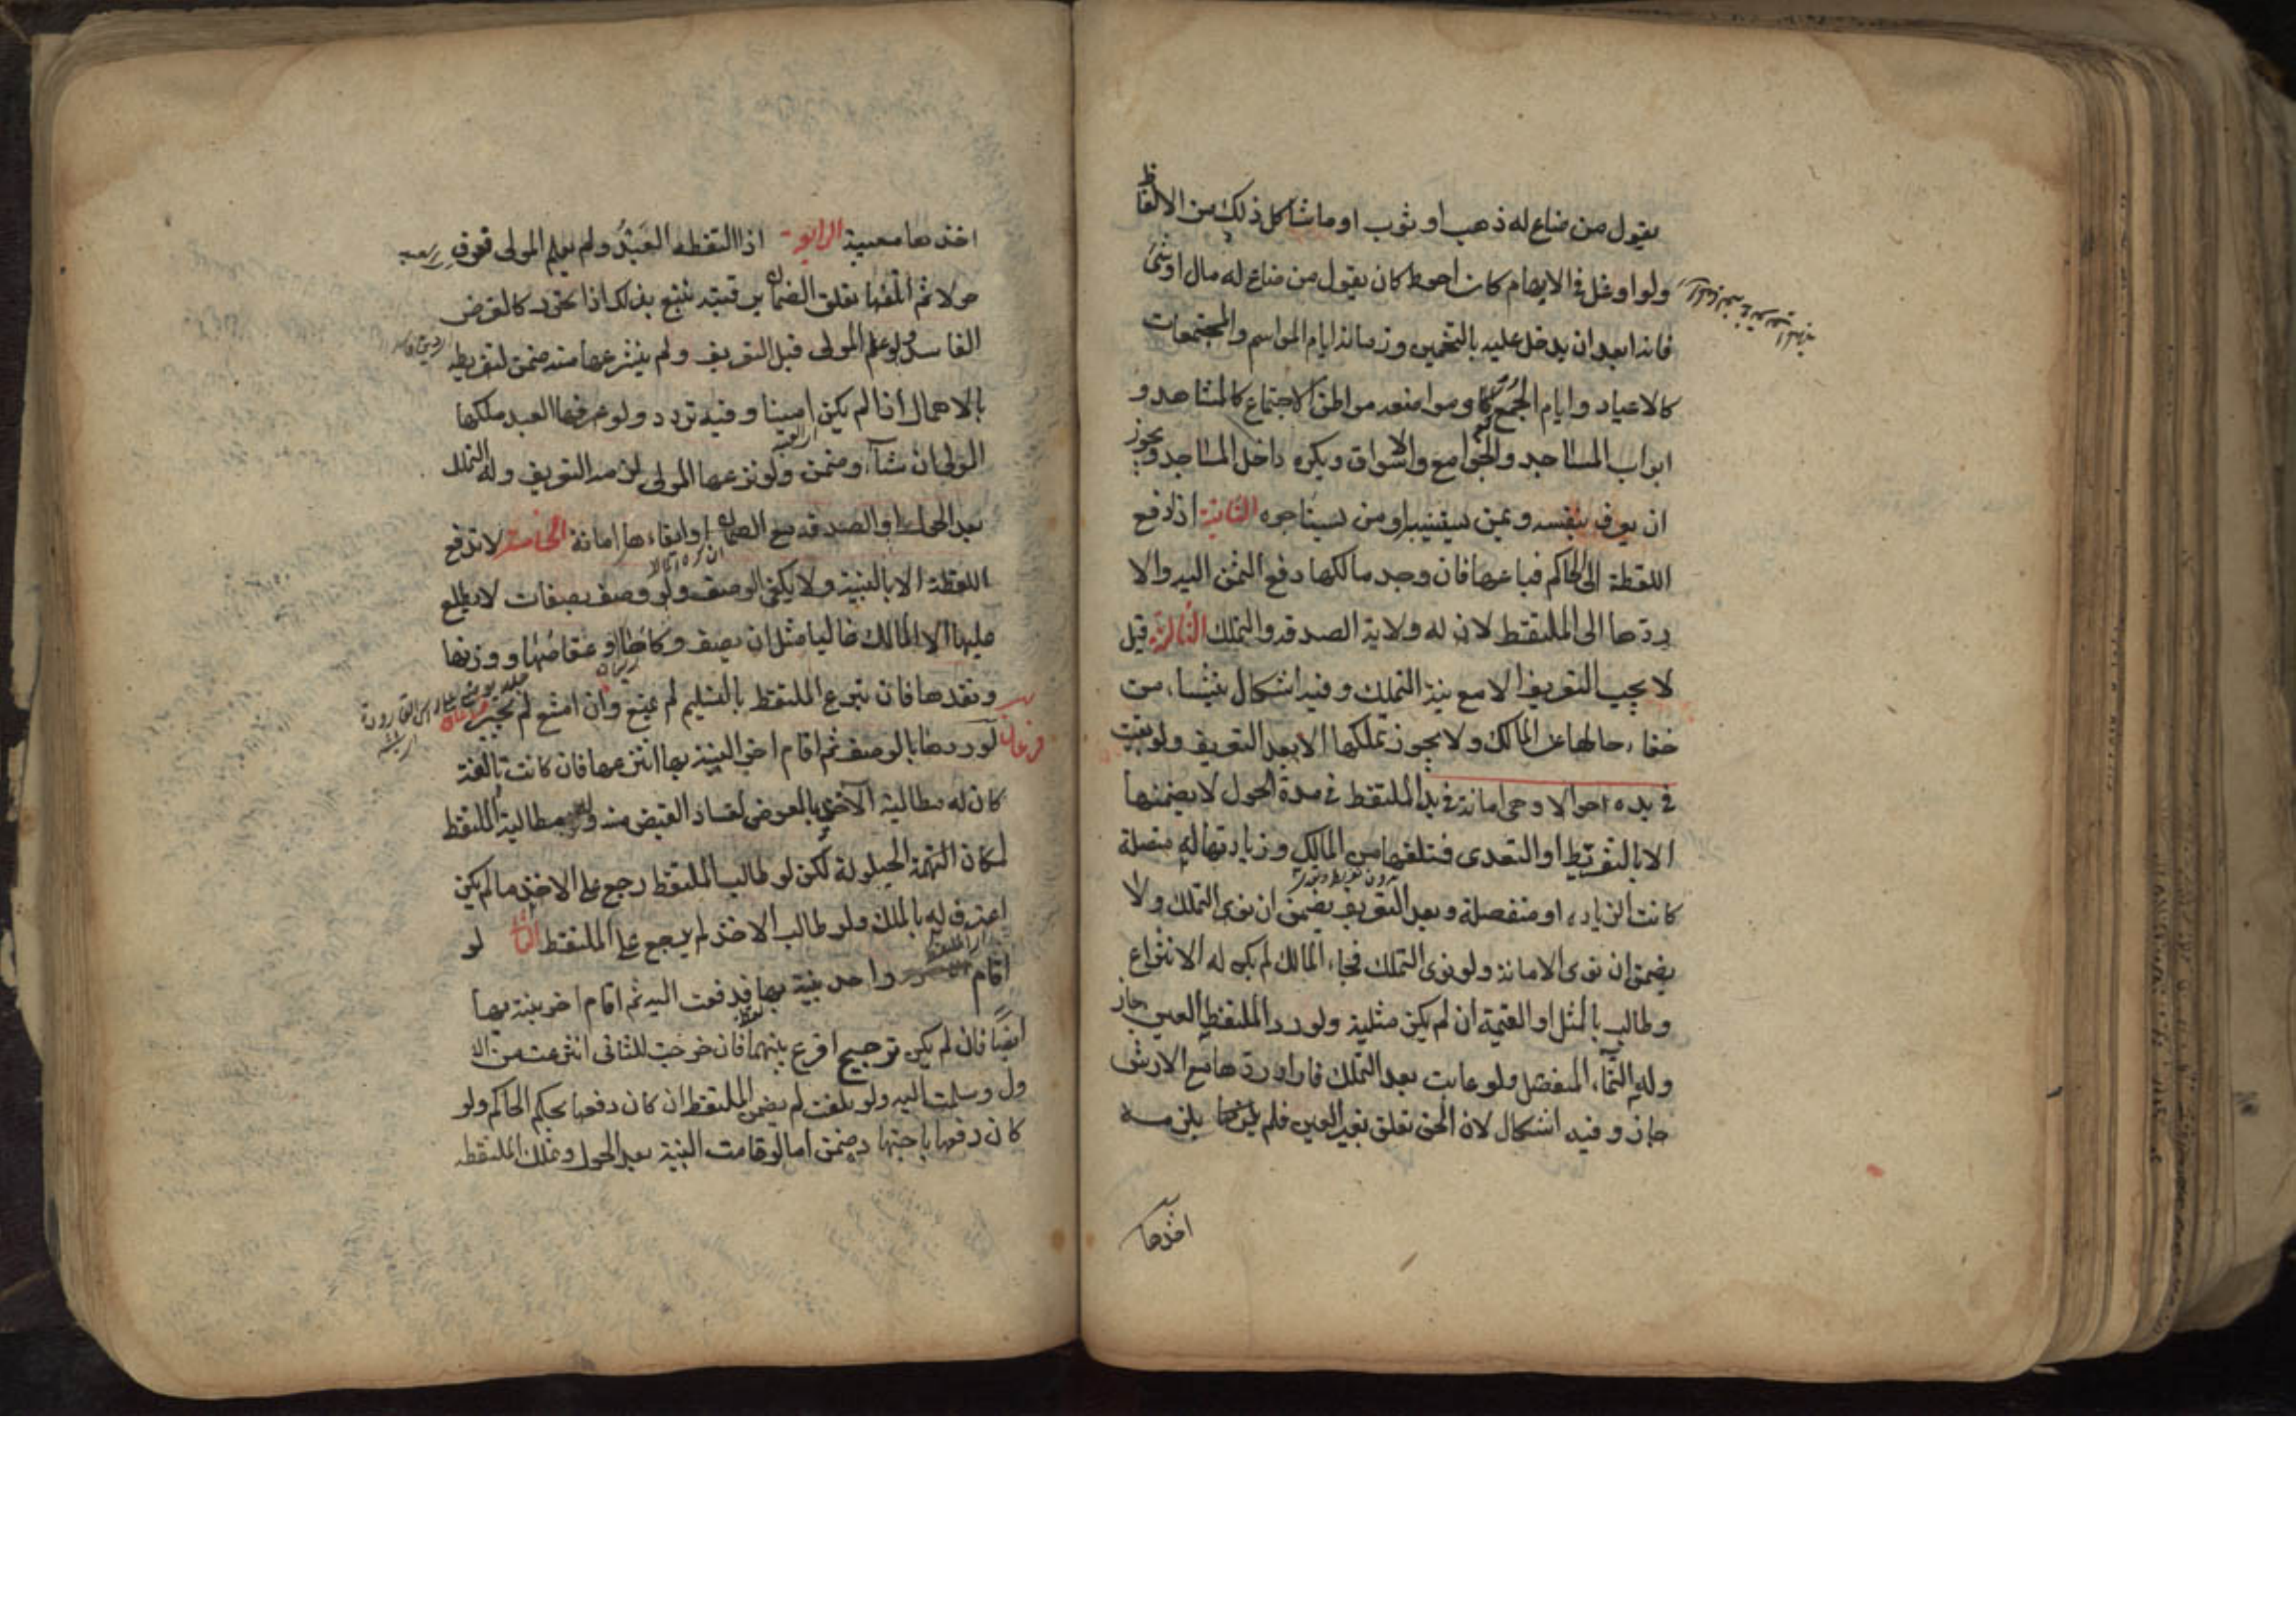 يقول من ضاع له ذهب او ثوب او ما شاكل ذلك من الالفاظ
ولو اوغل في الابهام كان احوط كان يقول من ضاع له مال او شئ
فانه ابعد ان يدخل عليه بالتخمين وزمانه ايام المواسم والمجتمعات
كالاعياد وايام الجمع ومواضعه مواطن الاجتماع كالمشاهد و
ابواب المساجد والجوامع والاسواق ويكره داخل المساجد ويجوز
ان يعرف بنفسه وبمن يستنيبه او من يستاجره الثانية اذا دفع
اللقطة الى الحاكم فباعها فان وجد مالكها دفع الثمن اليه والا
ردها الى الملتقط لان له ولاية الصدقه والتملك الثالثة قيل
لا يجب التعريف الا مع نية التملك وفيه اشكال ينشاء من
خفاء حالها عن المالك ولا يجوز تملكها الا بعد التعريف ولو بقيت
في يده احوالا وهي امانة في يد الملتقط في مدة الحول لا يضمنها
الا بالتفريط او التعدى فتلفها من المالك وزيادتها له متصلة
كانت الزياده او منفصلة وبعد التعريف يضمن ان نوى التملك ولا
بدون تفريط وتعد
يضمن ان نوى الامانة ولو نوى التملك فجاء المالك لم يكن له الانتزاع
وطالب بالمثل او القيمة ان لم يكن مثلية ولو رد الملتقط العين جاز
وله النماء المنفصل ولو عابت بعد التملك فاراد ردها مع الارش
جاز وفيه اشكال لان الحق تعلق بغير العين فلم يلزمه
اخذها
اخذها معيبة الرابعة اذا التقطه العبد ولم يعلم المولى فعرف
حولا ثم اتلفها تعلق الضمان برقبته يتبع بذلك اذا تحرر كالقرض
الفاسد ولو علم المولى قبل التعريف ولم ينتزعها منه ضمن لتفريطه
بالاهمال اذا لم يكن امينا وفيه تردد ولو عرفها العبد ملكها
المولى ان شاء وضمن ولو نزعها المولى لزمه التعريف وله التملك
بعد الحول او الصدقه مع الضمان او ابقاءها امانة الخامسة لا تدفع
اللقطة الا بالبينة ولا يكفي الوصف ولو وصف بصفات لا يطلع
عليها الا المالك غالبا مثل ان يصف وكاءها وعفاصها ووزنها
ونقدها فان تبرع الملتقط بالتسليم لم يمنع وان امتنع لم يجبر
فرعان لو ردها بالوصف ثم اقام اخر البينة بها انتزعها فان كانت تالفة
كان له مطالبة الاخذ بالعوض لفساد القبض منه وله مطالبة الملتقط
لمكان الحيلولة لكن لو طالب الملتقط رجع على الاخذ ما لم يكن
اعترف له بالملك ولو طالب الاخذ لم يرجع على الملتقط الثاني لو
اقام واحد بينة بها فدفعت اليه ثم اقام اخر بينة بها
ايضا فان لم يكن ترجيح اقرع بينهما فان خرجت للثاني انتزعت من الا
ول وسلمت اليه ولو تلفت لم يضمن الملتقط ان كان دفعها بحكم الحاكم ولو
كان دفعها باجتهاده ضمن اما لو قامت البينة بعد الحول وتملك الملتقط